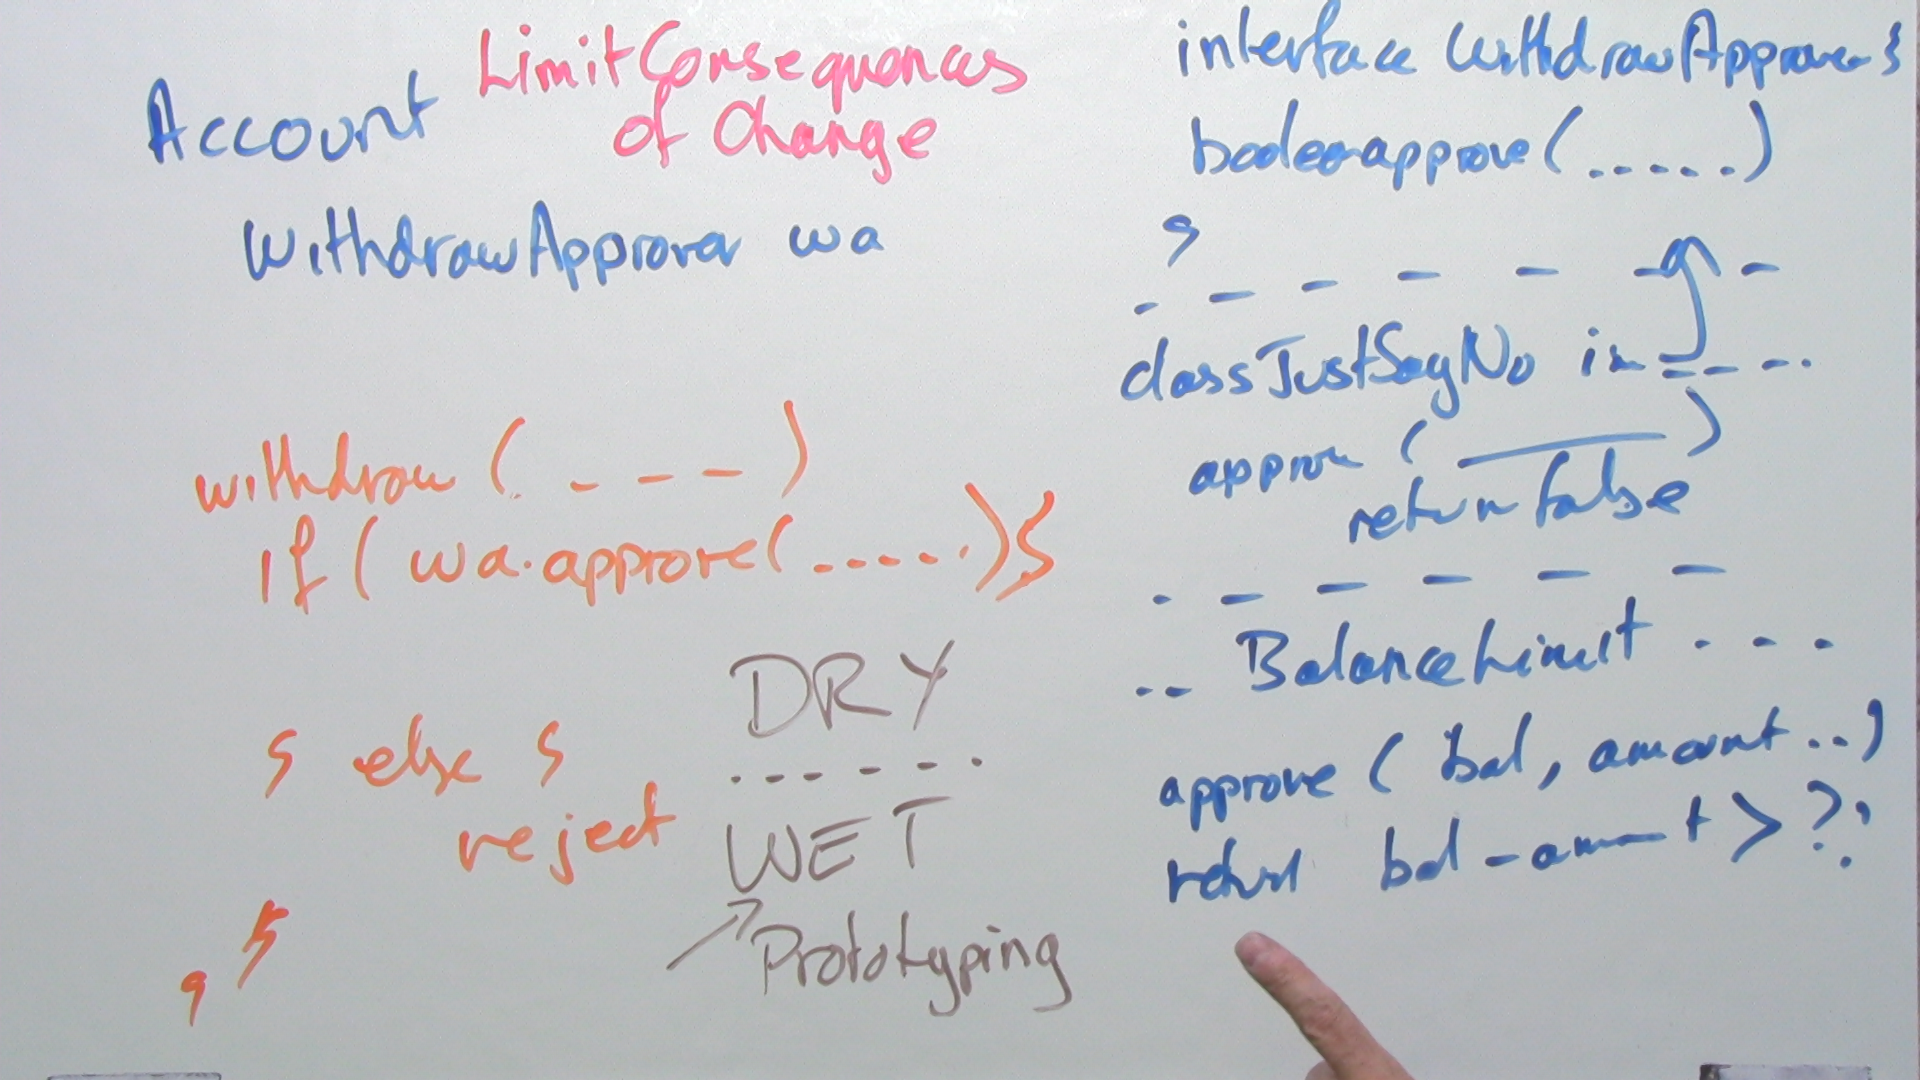 Account
Limit Consequences
of Change
WithdrawApprover wa
withdraw ( _ _ _ )
if ( wa.approve(......)){
} else {
reject
}
}
DRY
- - - - - -
WET
↗ Prototyping
interface WithdrawApprover {
boolean approve(......)
}
- - - - - - -
class JustSayNo im - - - -
approve ( ___ )
return false
- - - - - -
-- BalanceLimit - - -
approve ( bal, amount ..)
return bal - amount > ?;